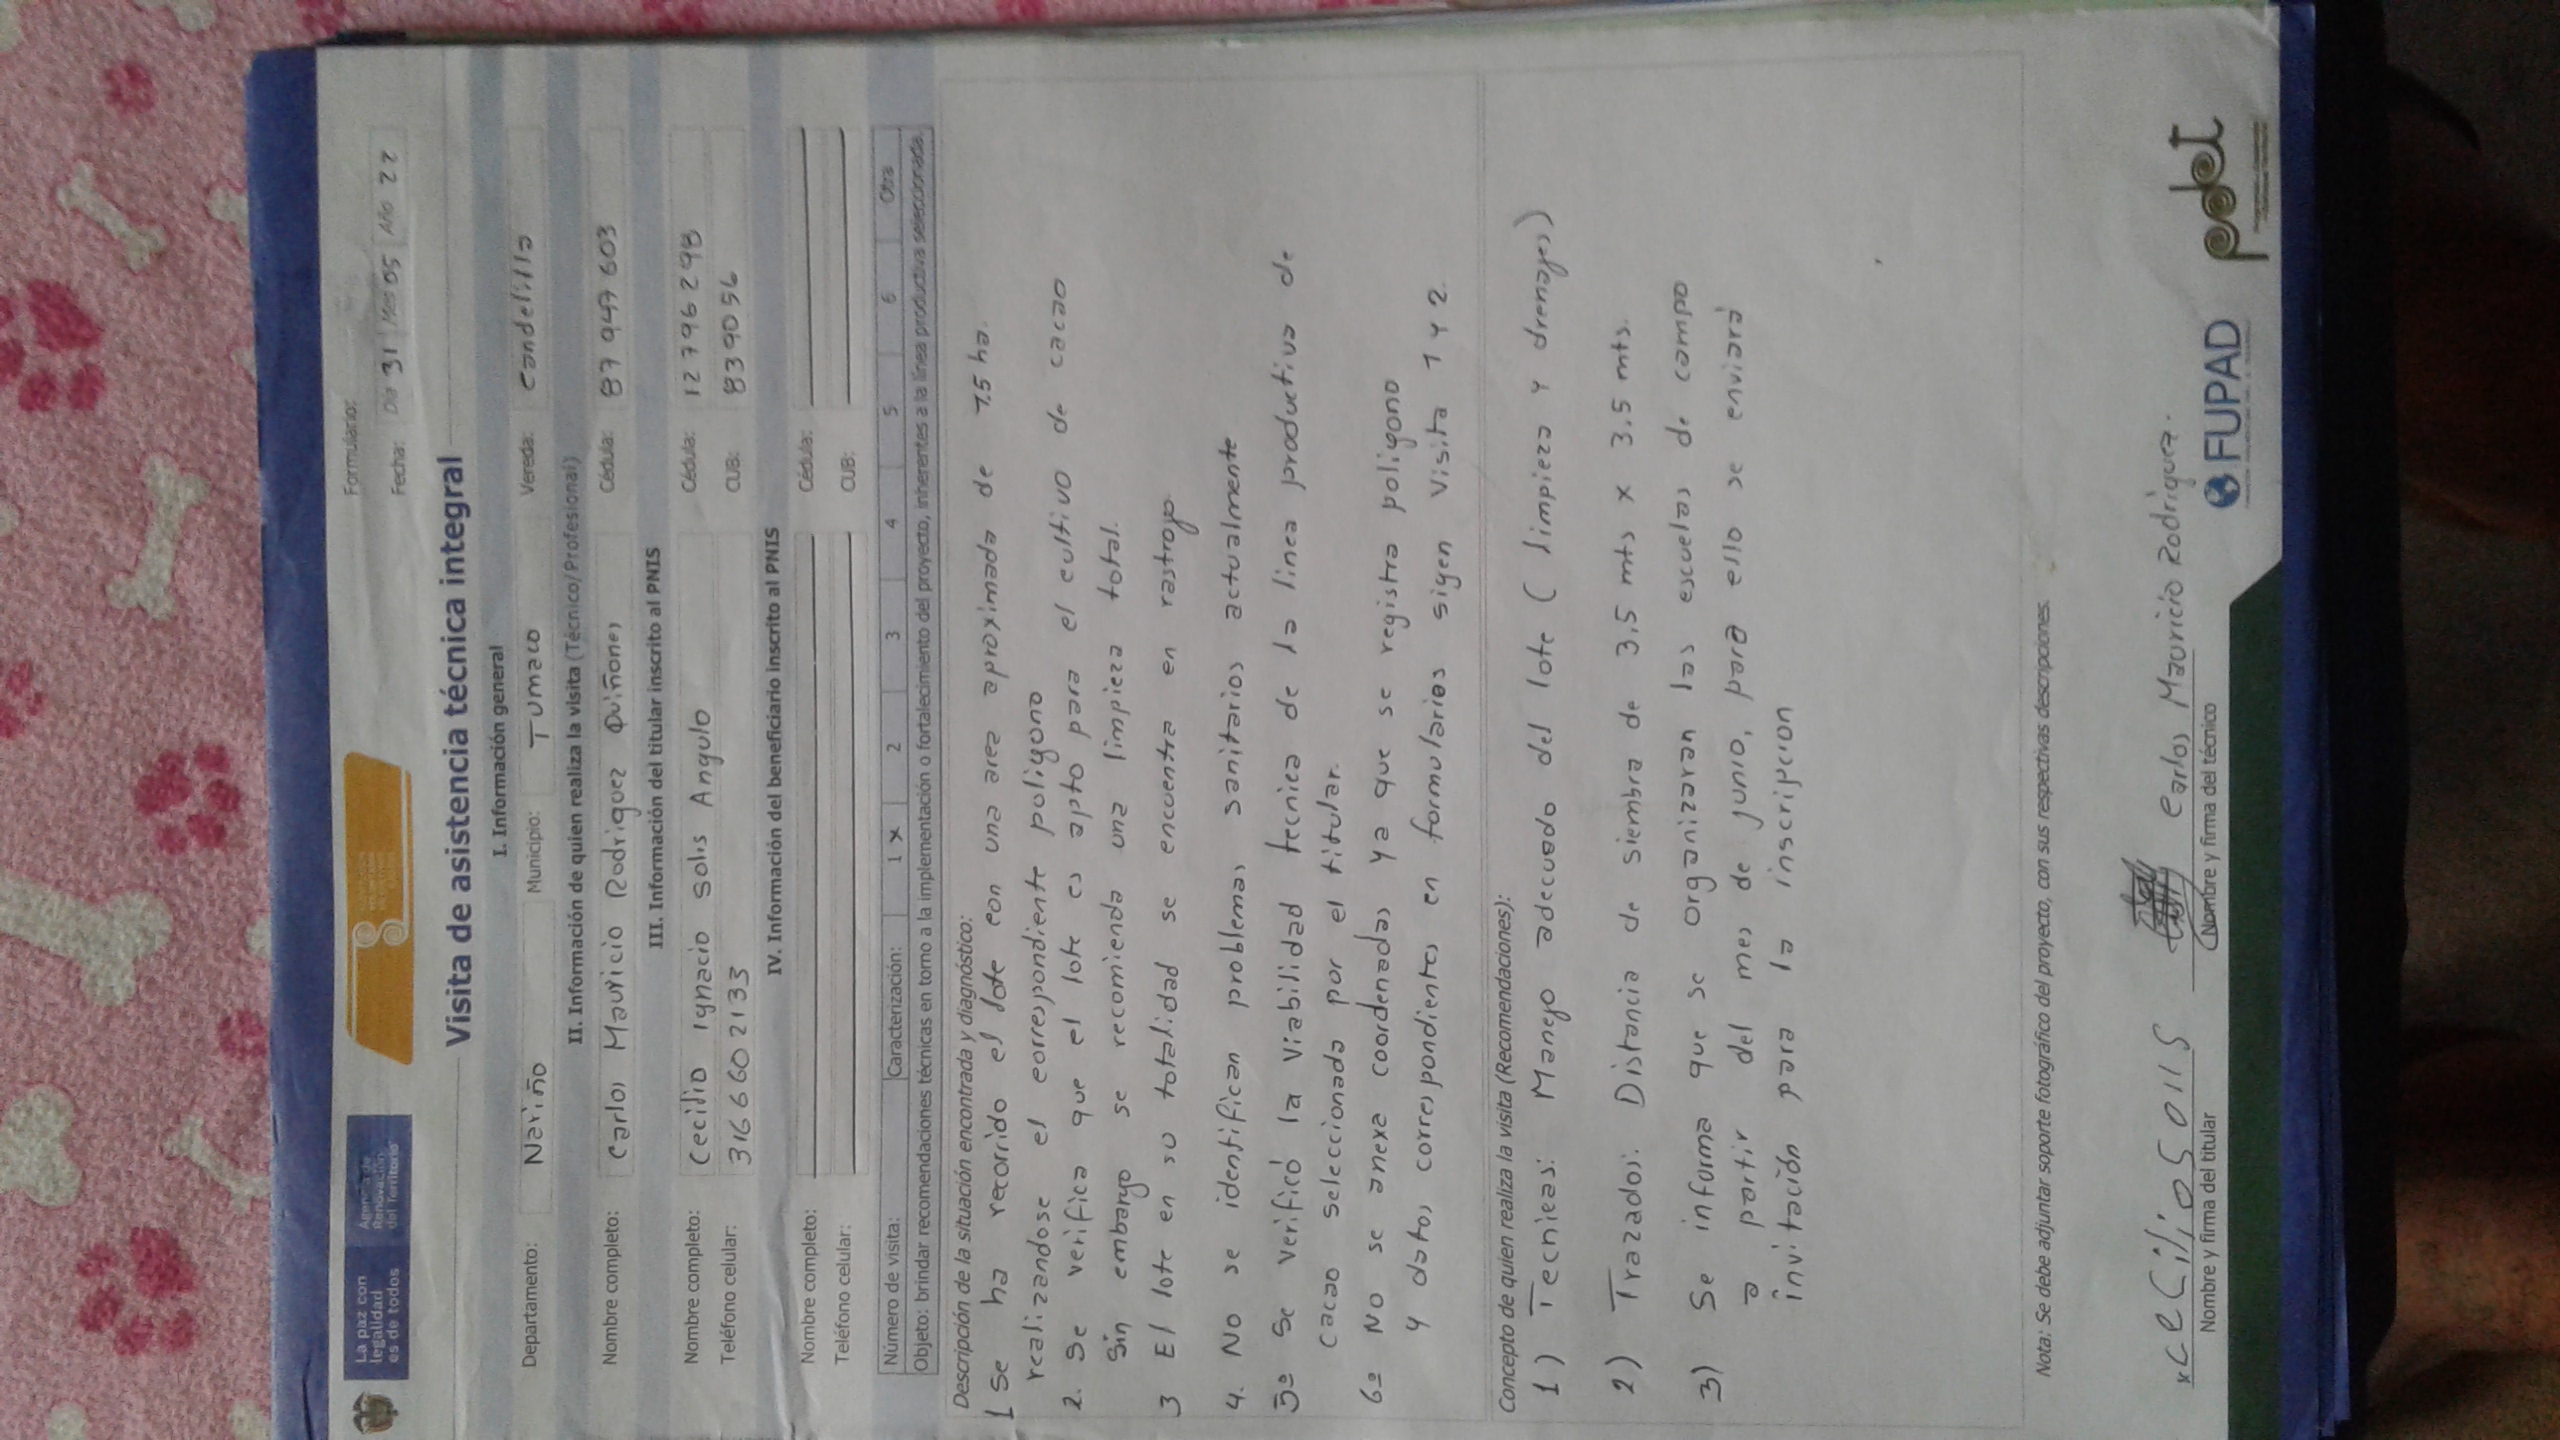 La paz con
legalidad
es de todos
Agencia de
Renovación
del Territorio
Formulario:
Fecha: Día 31 Mes 05 Año 22
Visita de asistencia técnica integral
I. Información general
Departamento: Nariño Municipio: Tumaco Vereda: Candelilla
II. Información de quien realiza la visita (Técnico/Profesional)
Nombre completo: Carlos Mauricio Rodriguez Quiñones Cédula: 87 947 603
III. Información del titular inscrito al PNIS
Nombre completo: Cecilio Ignacio Solis Angulo Cédula: 12 796 298
Teléfono celular: 316 660 2133 CUB: 8390 56
IV. Información del beneficiario inscrito al PNIS
Nombre completo: Cédula:
Teléfono celular: CUB:
Número de visita: Caracterización: 1 x 2 3 4 5 6 Otra
Objeto: brindar recomendaciones técnicas en torno a la implementación o fortalecimiento del proyecto, inherentes a la línea productiva seleccionada.
Descripción de la situación encontrada y diagnóstico:
1 Se ha recorrido el lote con una area aproximada de 7.5 ha.
realizandose el correspondiente poligono
2. Se verifica que el lote es apto para el cultivo de cacao
Sin embargo se recomienda una limpieza total.
3 El lote en su totalidad se encuentra en rastrojo
4. No se identifican problemas sanitarios actualmente
5º Se verificó la viabilidad tecnica de la linea productiva de
cacao seleccionada por el titular.
6º No se anexa coordenadas ya que se registra poligono
y datos correspondientes en formularios sigen visita 1 y 2
Concepto de quien realiza la visita (Recomendaciones):
1) Tecnicas: Manejo adecuado del lote ( limpieza y drenajes)
2) Trazados: Distancia de siembra de 3,5 mts x 3.5 mts.
3) Se informa que se organizaran las escuelas de campo
a partir del mes de junio, para ello se enviará
invitación para la inscripcion
Nota: Se debe adjuntar soporte fotográfico del proyecto, con sus respectivas descripciones.
x CeCilio SOlIS
Nombre y firma del titular
Carlos Mauricio Rodriguez.
Nombre y firma del técnico
FUPAD
pdet